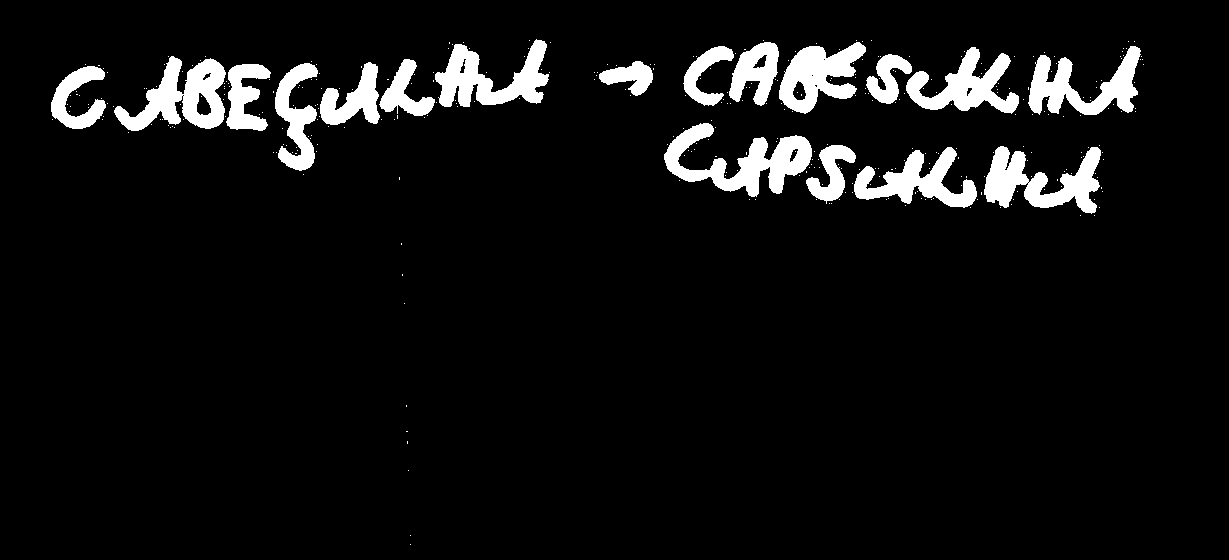 CABEÇALHA → CABESALHA
CAPSALHA